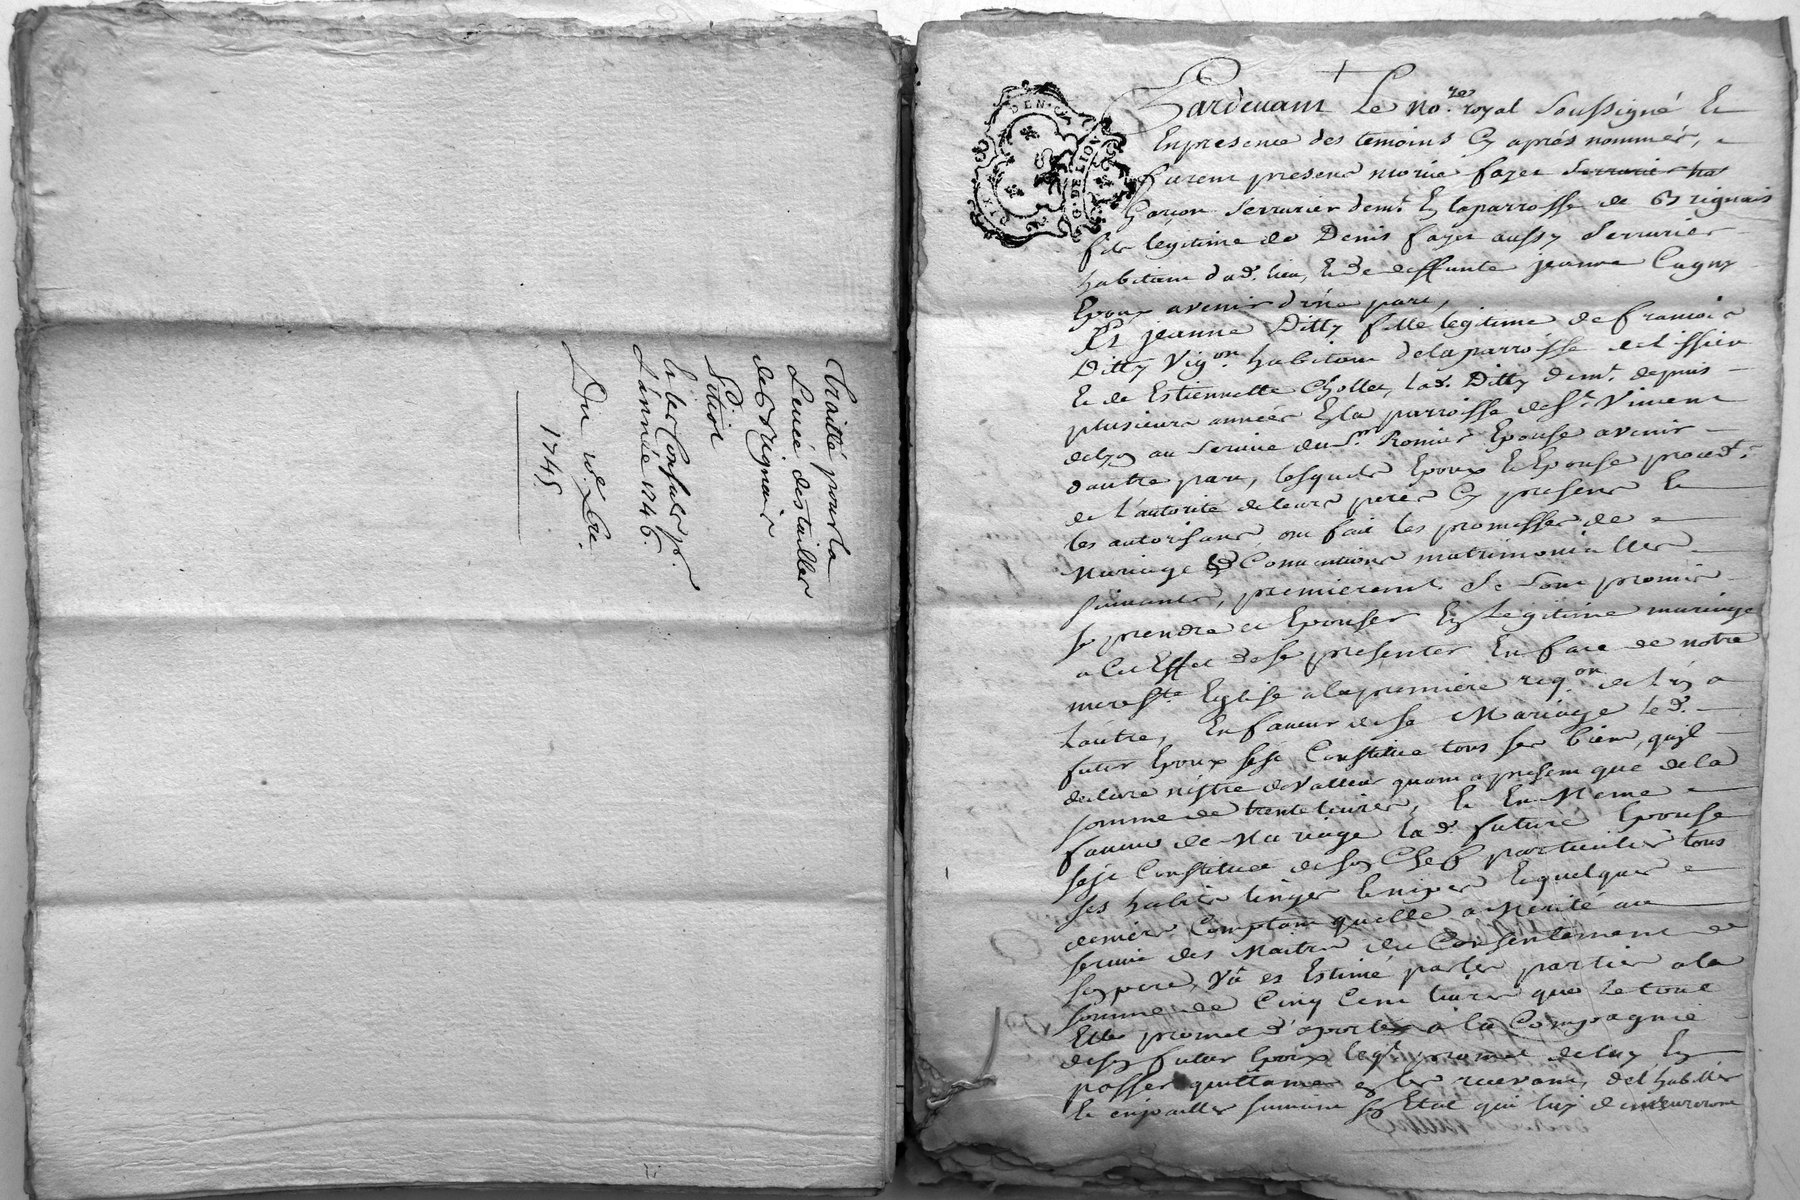 Traitté pour la
Levée des tailles
de Brignais
Pour
les Consuls p.
L'année 1746.
Du xbre
1745
DEN.
G. DE LION
Pardevant Le no.re royal soussigné et
En presence des temoins cy aprés nommés,
furent presens fayer serrurier
garcon serrurier dem.t En la parroisse de Brignais
fils legitime de Denis fayer aussy serrurier
habitant dud. lieu, et de deffunte jeanne Cugny
Epoux avenir d'une part,
Et jeanne Ditty fille legitime de francois
Ditty Vig.on habitant de la parroisse de lissieu
Et de Estiennette Chollet, lad. Ditty dem.t depuis
plusieurs années En la parroisse de S.t Vincent
de lyon au service du S.r Romier Epouse avenir
d'autre part, lesquels Epoux et Epouse proced.t
de l'autorité de leurs peres cy presens et
les autorisans, ont fait les promesses de
Mariage et Conventions matrimonialles
suivantes, premierem.t se sont promis
se prendre et Epouser En Legitime mariage
a Cet Effet de se presenter En face de notre
mere S.te Eglise a la premiere req.on de l'un a
L'autre, En faveur de ce Mariage led.
futur Epoux s'est Constitué tous ses biens, qu'il
declare n'estre de Valleur quant a present que de la
somme de trente livres, Et En Meme
faveur de Mariage lad. future Epouse
s'est Constituée de son Chef particulier tous
ses habits linges et nipes et quelques
deniers Comptant quelle a Merité au
service des Maitres du Consentement de
son pere, Et Estimé par les parties a la
somme de Cinq Cent livres que le tout
Elle promet d'aporter a la Compagnie
de son futur Epoux leq.l promet de luy En
passer quittance En les recevant, de l'habiller
Et enjoailler suivant son Etat qui luy demeureront